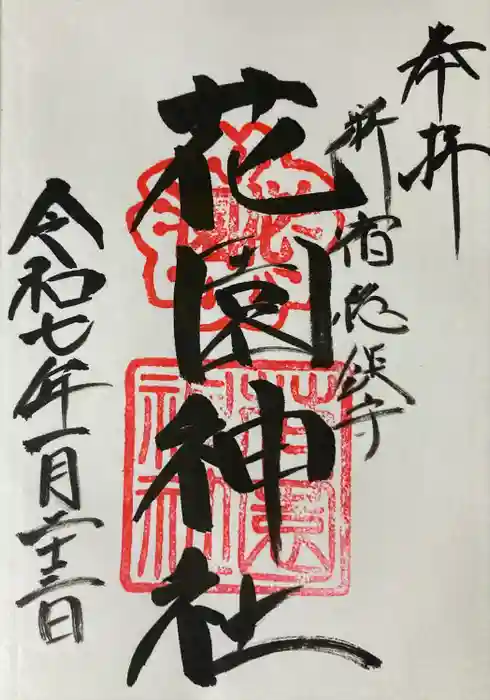 奉拝
新宿総鎮守
花園神社
令和七年一月二十三日